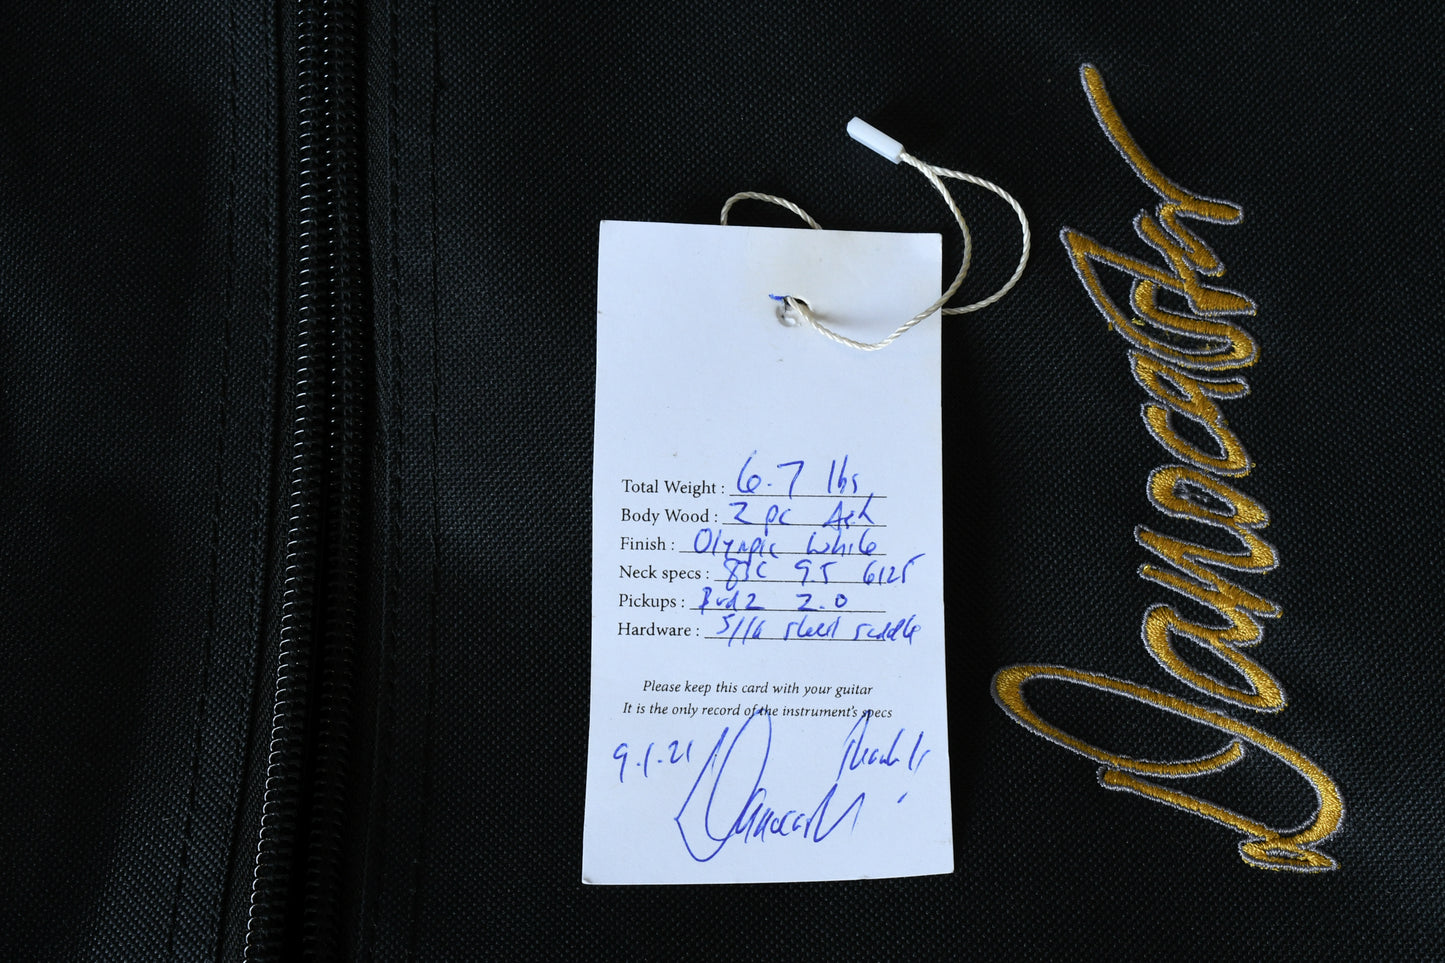 Total Weight : 6.7 lbs
Body Wood : 2 pc Ash
Finish : Olympic White
Neck specs : 83C 9.5 6125
Pickups : Brd2 2.0
Hardware : 5/16 steel saddle
Please keep this card with your guitar
It is the only record of the instrument's specs
9.1.21
Thanks!
Danocaster
Danocaster